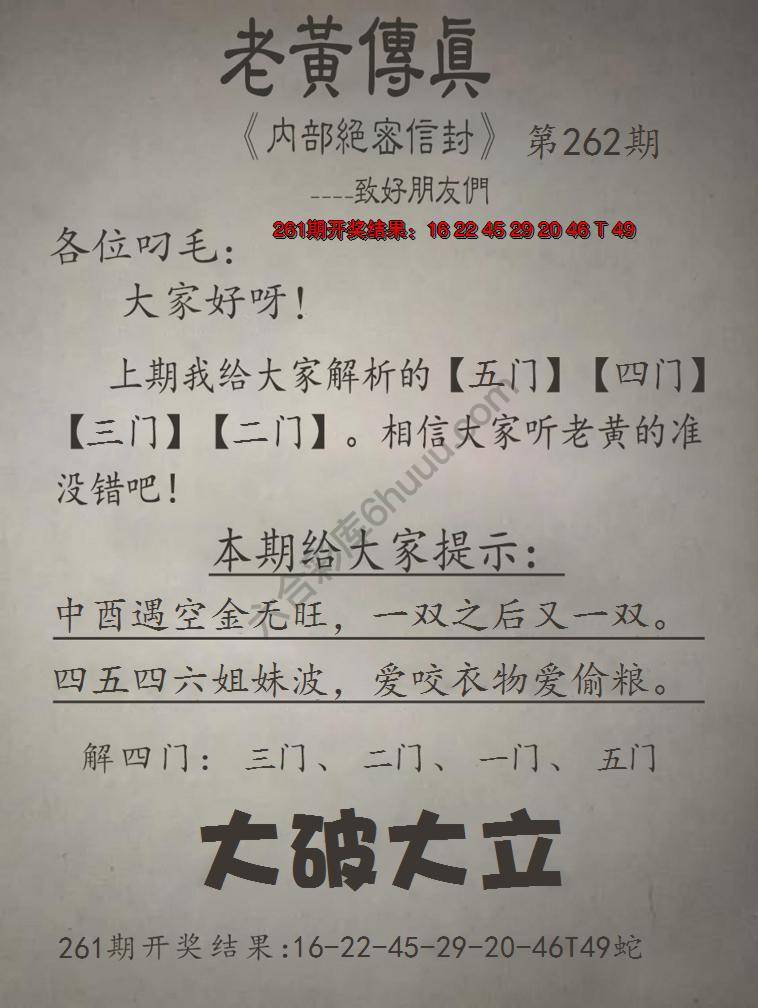 老黃傳眞
《内部絕密信封》 第262期
----致好朋友們
261期开奖结果：16 22 45 29 20 46 T 49
各位叼毛：
大家好呀！
上期我给大家解析的【五门】【四门】
【三门】【二门】。相信大家听老黄的准
没错吧！
本期给大家提示：
中酉遇空金无旺，一双之后又一双。
四五四六姐妹波，爱咬衣物爱偷粮。
解四门：三门、二门、一门、五门
大破大立
261期开奖结果:16-22-45-29-20-46T49蛇
六合彩库6huuu.com